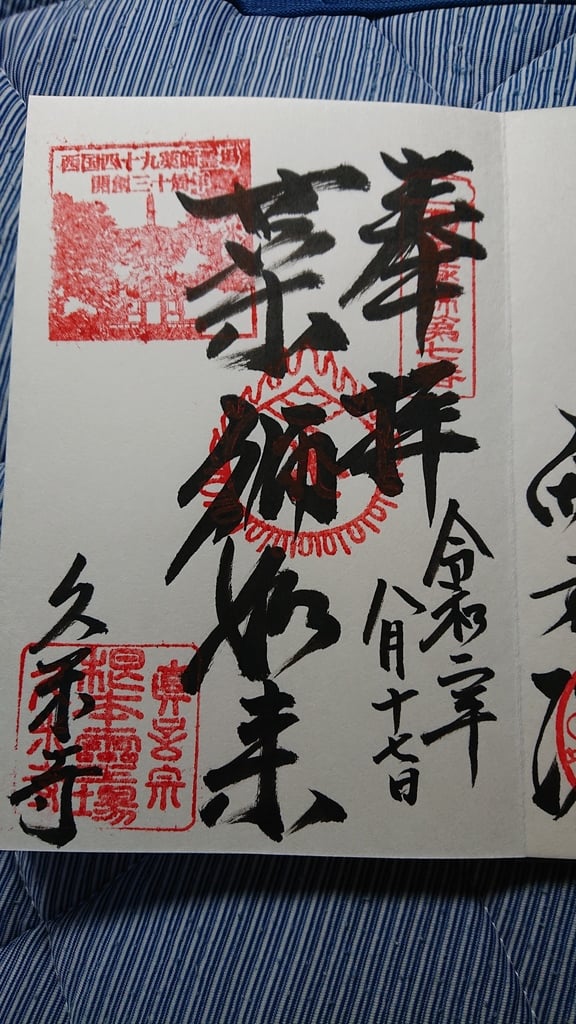 奉拝
令和二年
八月十七日
薬師如来
西国四十九薬師霊場
開創三十周年
久米寺
真言宗
根本霊場